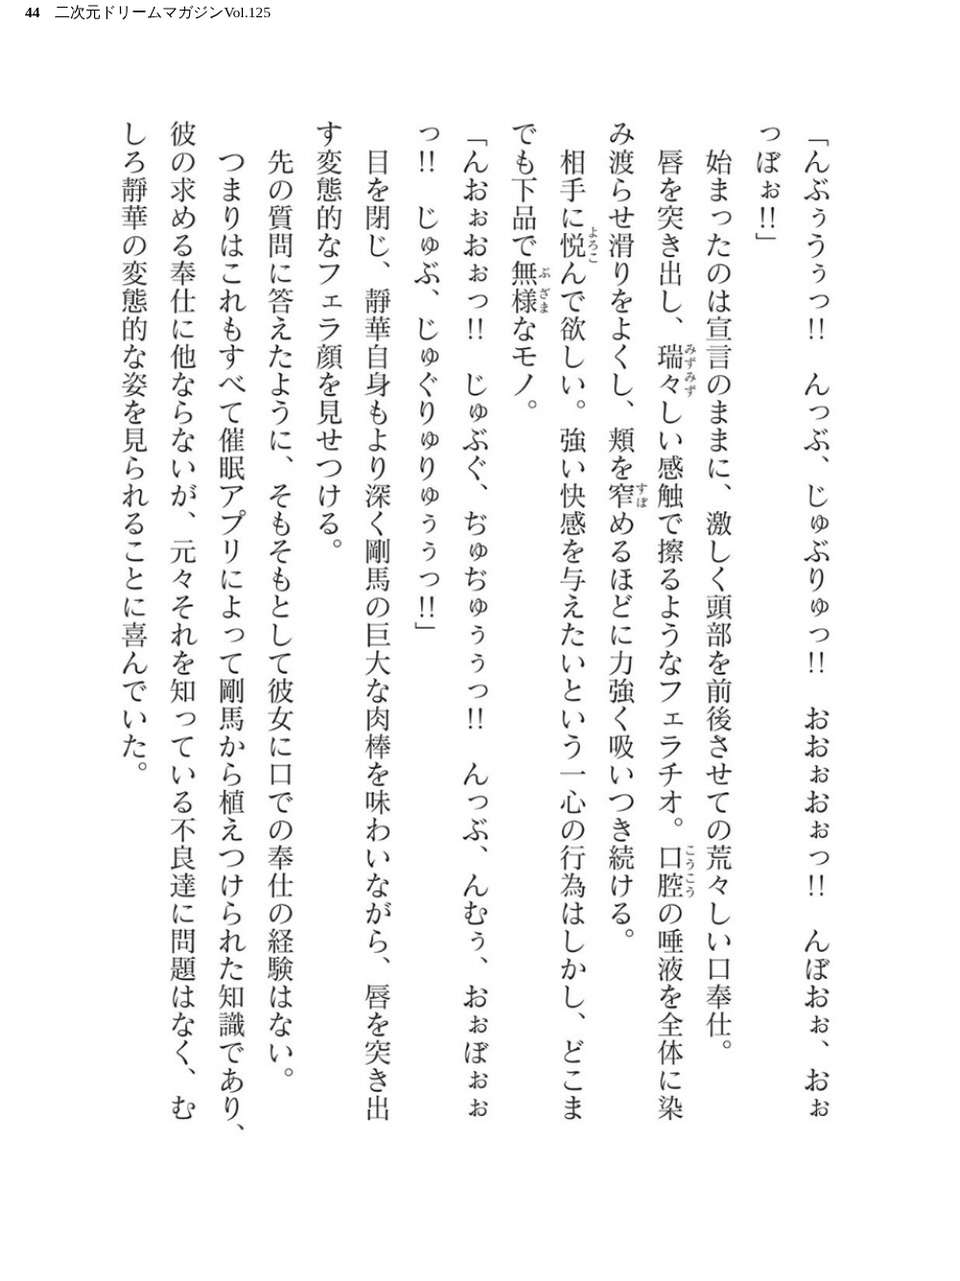 44 二次元ドリームマガジンVol.125
「んぶぅうぅっ!!　んっぶ、じゅぶりゅっ!!　おおぉおぉっ!!　んぼおぉ、おぉ
っぼぉ!!」
始まったのは宣言のままに、激しく頭部を前後させての荒々しい口奉仕。
唇を突き出し、瑞々しい感触で擦るようなフェラチオ。口腔の唾液を全体に染
み渡らせ滑りをよくし、頬を窄めるほどに力強く吸いつき続ける。
相手に悦んで欲しい。強い快感を与えたいという一心の行為はしかし、どこま
でも下品で無様なモノ。
「んおぉおぉっ!!　じゅぶぐ、ぢゅぢゅぅぅっ!!　んっぶ、んむぅ、おぉぼぉぉ
っ!!　じゅぶ、じゅぐりゅりゅぅぅっ!!」
目を閉じ、靜華自身もより深く剛馬の巨大な肉棒を味わいながら、唇を突き出
す変態的なフェラ顔を見せつける。
先の質問に答えたように、そもそもとして彼女に口での奉仕の経験はない。
つまりはこれもすべて催眠アプリによって剛馬から植えつけられた知識であり、
彼の求める奉仕に他ならないが、元々それを知っている不良達に問題はなく、む
しろ靜華の変態的な姿を見られることに喜んでいた。